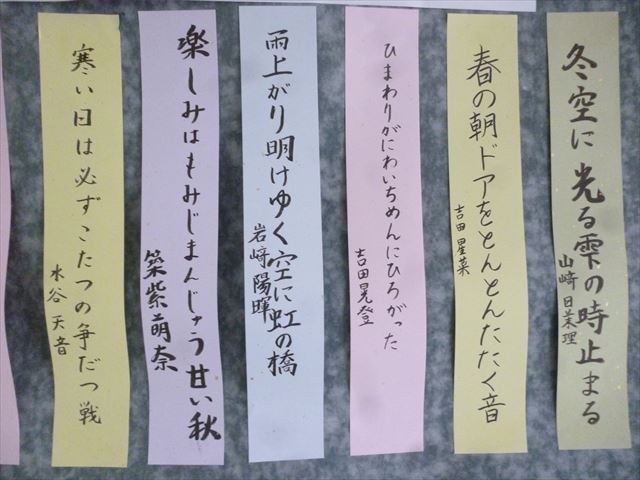 冬空に光る雫の時止まる
山﨑日茉理
春の朝ドアをとんとんたたく音
吉田星菜
ひまわりがにわいちめんにひろがった
吉田晃登
雨上がり明けゆく空に虹の橋
岩﨑陽暉
楽しみはもみじまんじゅう甘い秋
築紫萌奈
寒い日は必ずこたつの争だつ戦
水谷天音